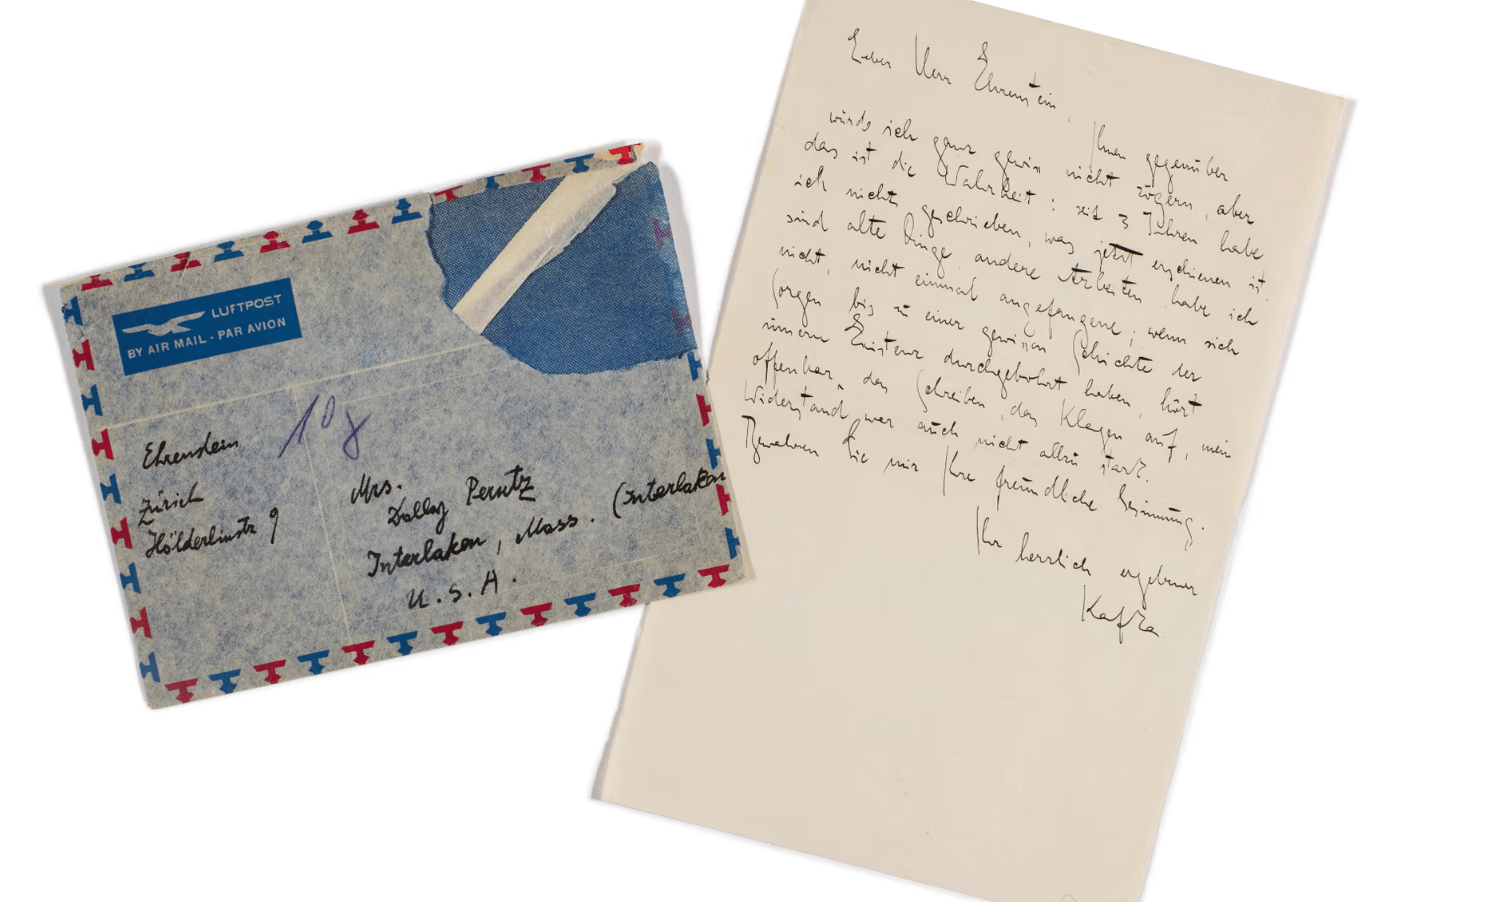 LUFTPOST
BY AIR MAIL - PAR AVION
Ehrenstein
Zürich
Hölderlinstr 9
10 g
Mrs.
Dolly Perutz
Interlaken, Mass. (Interlaken
U.S.A.
Lieber Herr Ehrenstein,
Ihnen gegenüber
würde ich ganz gewiss nicht zögern, aber
das ist die Wahrheit: seit 3 Jahren habe
ich nichts geschrieben, was jetzt erschienen ist,
sind alte Dinge, andere Arbeiten habe ich
nicht, nicht einmal angefangene; wenn sich
Sorgen bis zu einer gewissen Schichte der
innern Existenz durchgebohrt haben, hört
offenbar das Schreiben, das Klagen auf, mein
Widerstand war auch nicht allzu stark.
Bewahren Sie mir Ihre freundliche Gesinnung.
Ihr herzlich ergebener
Kafka